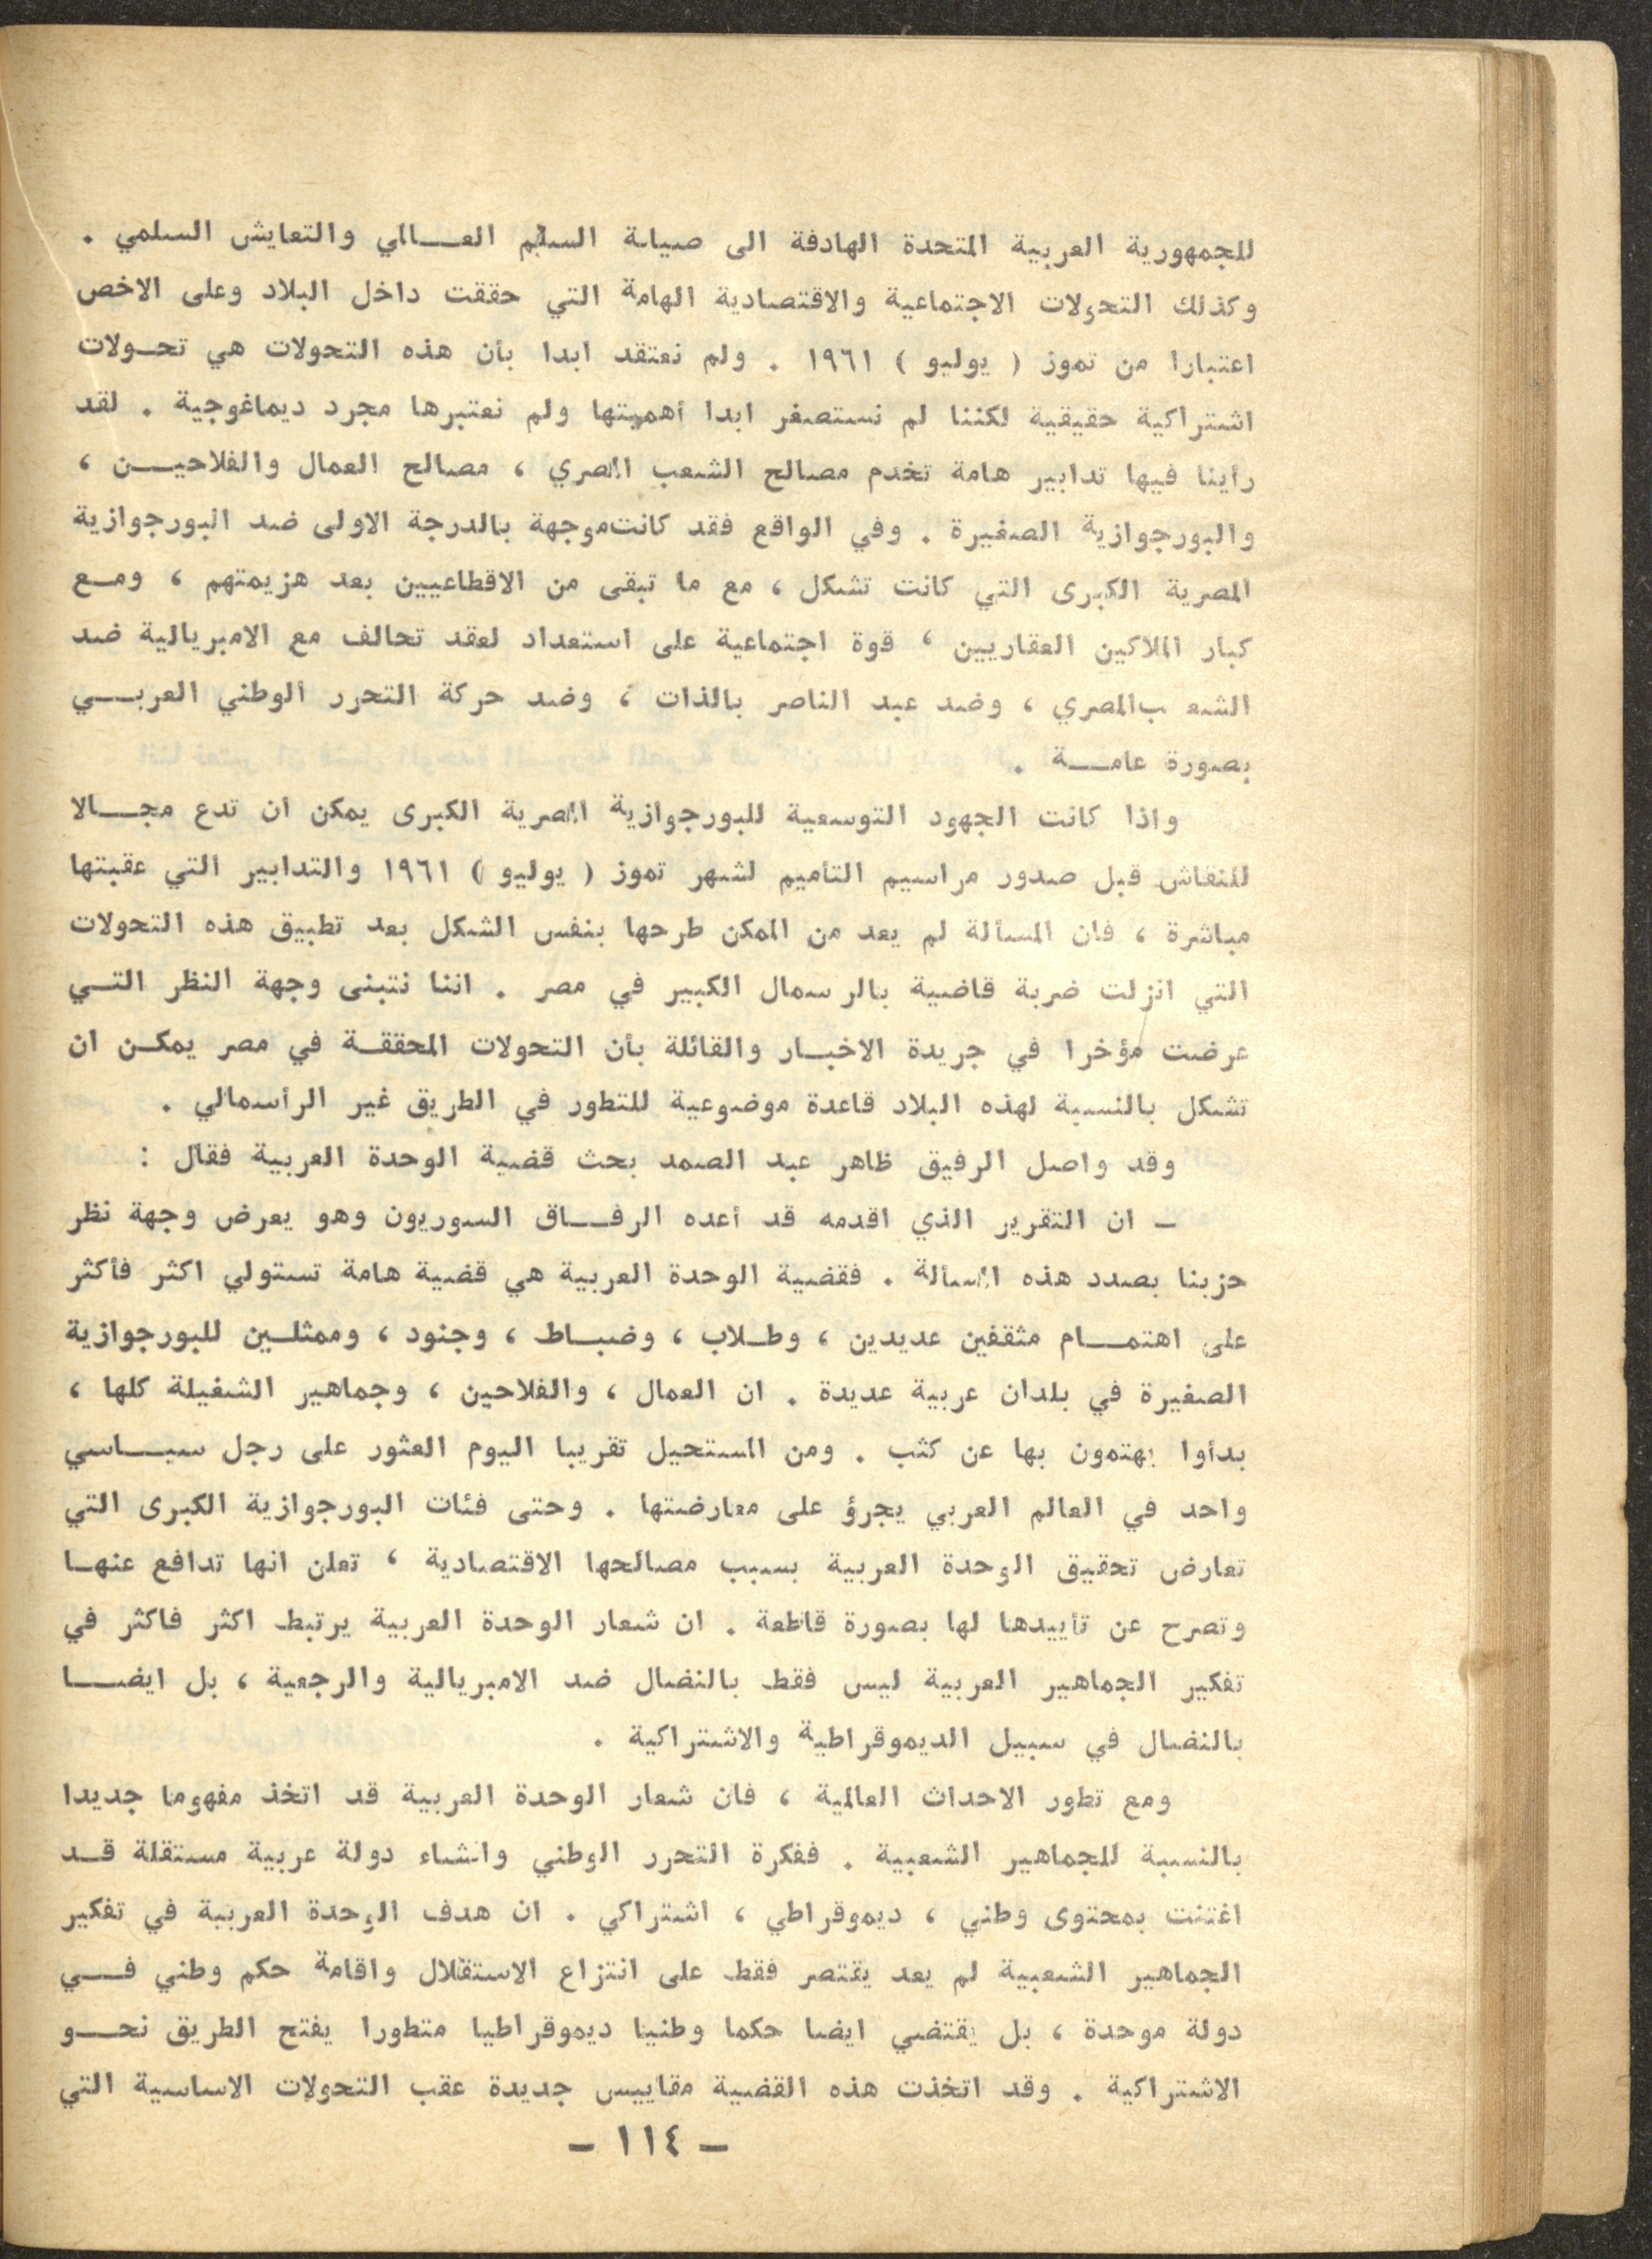 للجمهورية العربية المتحدة الهادفة الى صيانة السلم العـــالمي والتعايش السلمي .
وكذلك التحولات الاجتماعية والاقتصادية الهامة التي حققت داخل البلاد وعلى الاخص
اعتبارا من تموز ( يوليو ) ١٩٦١ . ولم نعتقد ابدا بأن هذه التحولات هي تحـولات
اشتراكية حقيقية لكننا لم نستصغر ابدا أهميتها ولم نعتبرها مجرد ديماغوجية . لقد
رأينا فيها تدابير هامة تخدم مصالح الشعب المصري ، مصالح العمال والفلاحيـــن ،
والبورجوازية الصغيرة . وفي الواقع فقد كانت موجهة بالدرجة الاولى ضد البورجوازية
المصرية الكبرى التي كانت تشكل ، مع ما تبقى من الاقطاعيين بعد هزيمتهم ، ومـع
كبار الملاكين العقاريين ، قوة اجتماعية على استعداد لعقد تحالف مع الامبريالية ضد
الشعـ ب المصري ، وضد عبد الناصر بالذات ، وضد حركة التحرر الوطني العربـــي
بصورة عامـــة .
واذا كانت الجهود التوسعية للبورجوازية المصرية الكبرى يمكن ان تدع مجـــالا
للنقاش قبل صدور مراسيم التأميم لشهر تموز ( يوليو ) ١٩٦١ والتدابير التي عقبتها
مباشرة ، فان المسألة لم يعد من الممكن طرحها بنفس الشكل بعد تطبيق هذه التحولات
التي انزلت ضربة قاضية بالرسمال الكبير في مصر . اننا نتبنى وجهة النظر التـــي
عرضت مؤخرا في جريدة الاخبـار والقائلة بأن التحولات المحققـة في مصر يمكـن ان
تشكل بالنسبة لهذه البلاد قاعدة موضوعية للتطور في الطريق غير الرأسمالي .
وقد واصل الرفيق ظاهر عبد الصمد بحث قضية الوحدة العربية فقال :
ـ ان التقرير الذي اقدمه قد أعده الرفـــاق السوريون وهو يعرض وجهة نظر
حزبنا بصدد هذه المسألة . فقضية الوحدة العربية هي قضية هامة تستولي اكثر فأكثر
على اهتمـــام مثقفين عديدين ، وطـلاب ، وضبـاط ، وجنود ، وممثلـين للبورجوازية
الصغيرة في بلدان عربية عديدة . ان العمال ، والفلاحين ، وجماهير الشغيلة كلها ،
بدأوا يهتمون بها عن كثب . ومن المستحيل تقريبا اليوم العثور على رجل سيـــاسي
واحد في العالم العربي يجرؤ على معارضتها . وحتى فئات البورجوازية الكبرى التي
تعارض تحقيق الوحدة العربية بسبب مصالحها الاقتصادية ، تعلن انها تدافع عنهـا
وتصرح عن تأييدها لها بصورة قاطعة . ان شعار الوحدة العربية يرتبط اكثر فاكثر في
تفكير الجماهير العربية ليس فقط بالنضال ضد الامبريالية والرجعية ، بل ايضـــا
بالنضال في سبيل الديموقراطية والاشتراكية .
ومع تطور الاحداث العالمية ، فان شعار الوحدة العربية قد اتخذ مفهوما جديدا
بالنسبة للجماهير الشعبية . ففكرة التحرر الوطني وانشاء دولة عربية مستقلة قـد
اغتنت بمحتوى وطني ، ديموقراطي ، اشتراكي . ان هدف الوحدة العربية في تفكير
الجماهير الشعبية لم يعد يقتصر فقط على انتزاع الاستقلال واقامة حكم وطني فـــي
دولة موحدة ، بل يقتضي ايضا حكما وطنيا ديموقراطيا متطورا يفتح الطريق نحـــو
الاشتراكية . وقد اتخذت هذه القضية مقاييس جديدة عقب التحولات الاساسية التي
ـ ١١٤ ـ